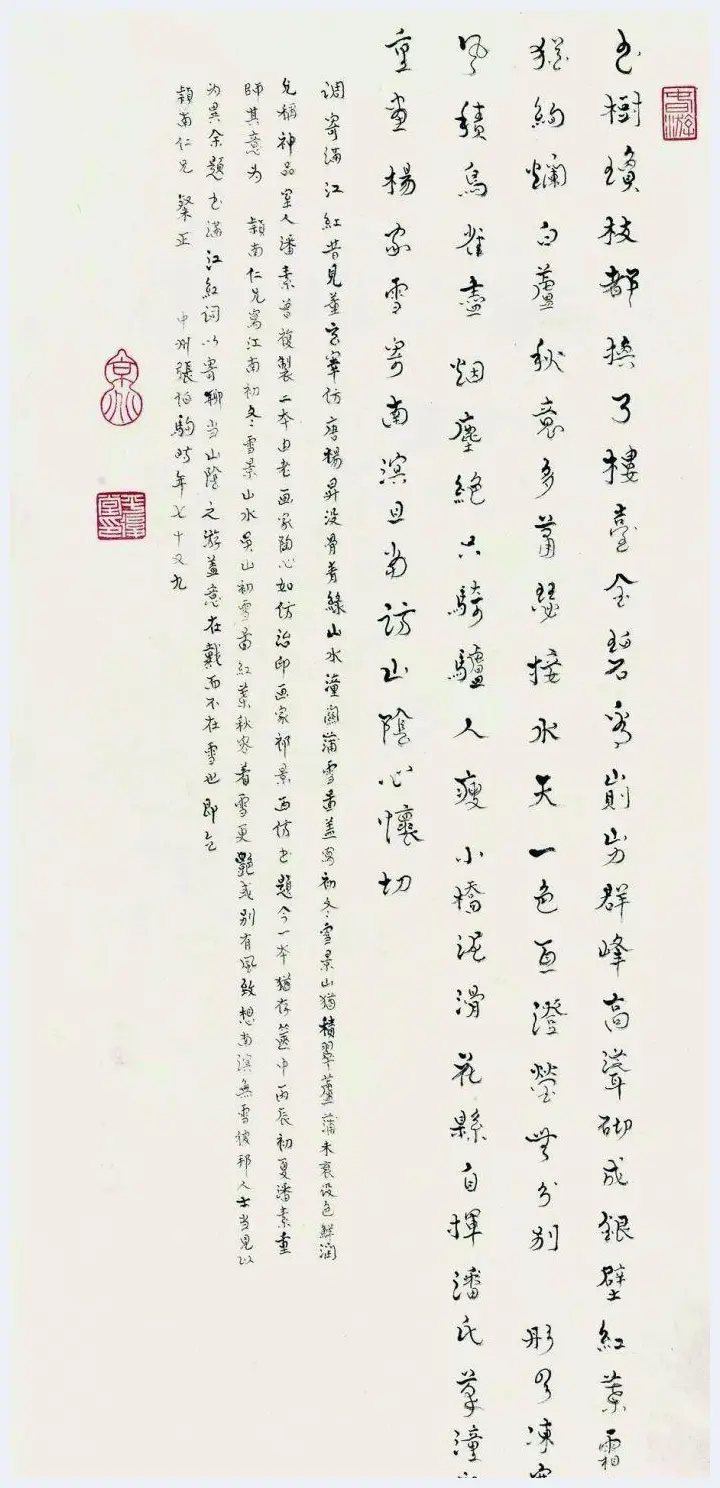 玉樹瓊枝都換了樓臺金碧看崱屴群峰高聳砌成銀壁紅葉霜
猶絢爛白蘆秋意多蕭瑟接水天一色互澄瑩無分别 彤雲凍
風積鳥雀盡烟塵絶只騎驢人瘦小橋泥滑花縣自揮潘氏草潼
重畫楊家雪寄南溟且當訪山陰心懷切
调寄满江紅昔見董玄宰仿唐楊昇没骨青綠山水潼關蒲雪圖盖寫初冬雪景山猶積翠蘆蒲未衰设色鮮润
允稱神品室人潘素曾複製二本由老画家陶心如仿治印画家祁景西仿书題今一本猶存箧中丙辰初夏潘素重
師其意为 穎南仁兄寫江南初冬雪景山水吳山初雪圖紅葉秋容着雪更艷或别有風致想南溟無雪彼邦人士当見以
为異余題书满江紅词以寄聊当山陰之游盖意在戴而不在雪也即乞
穎南仁兄 粲正 中州張伯駒時年七十又九
京兆